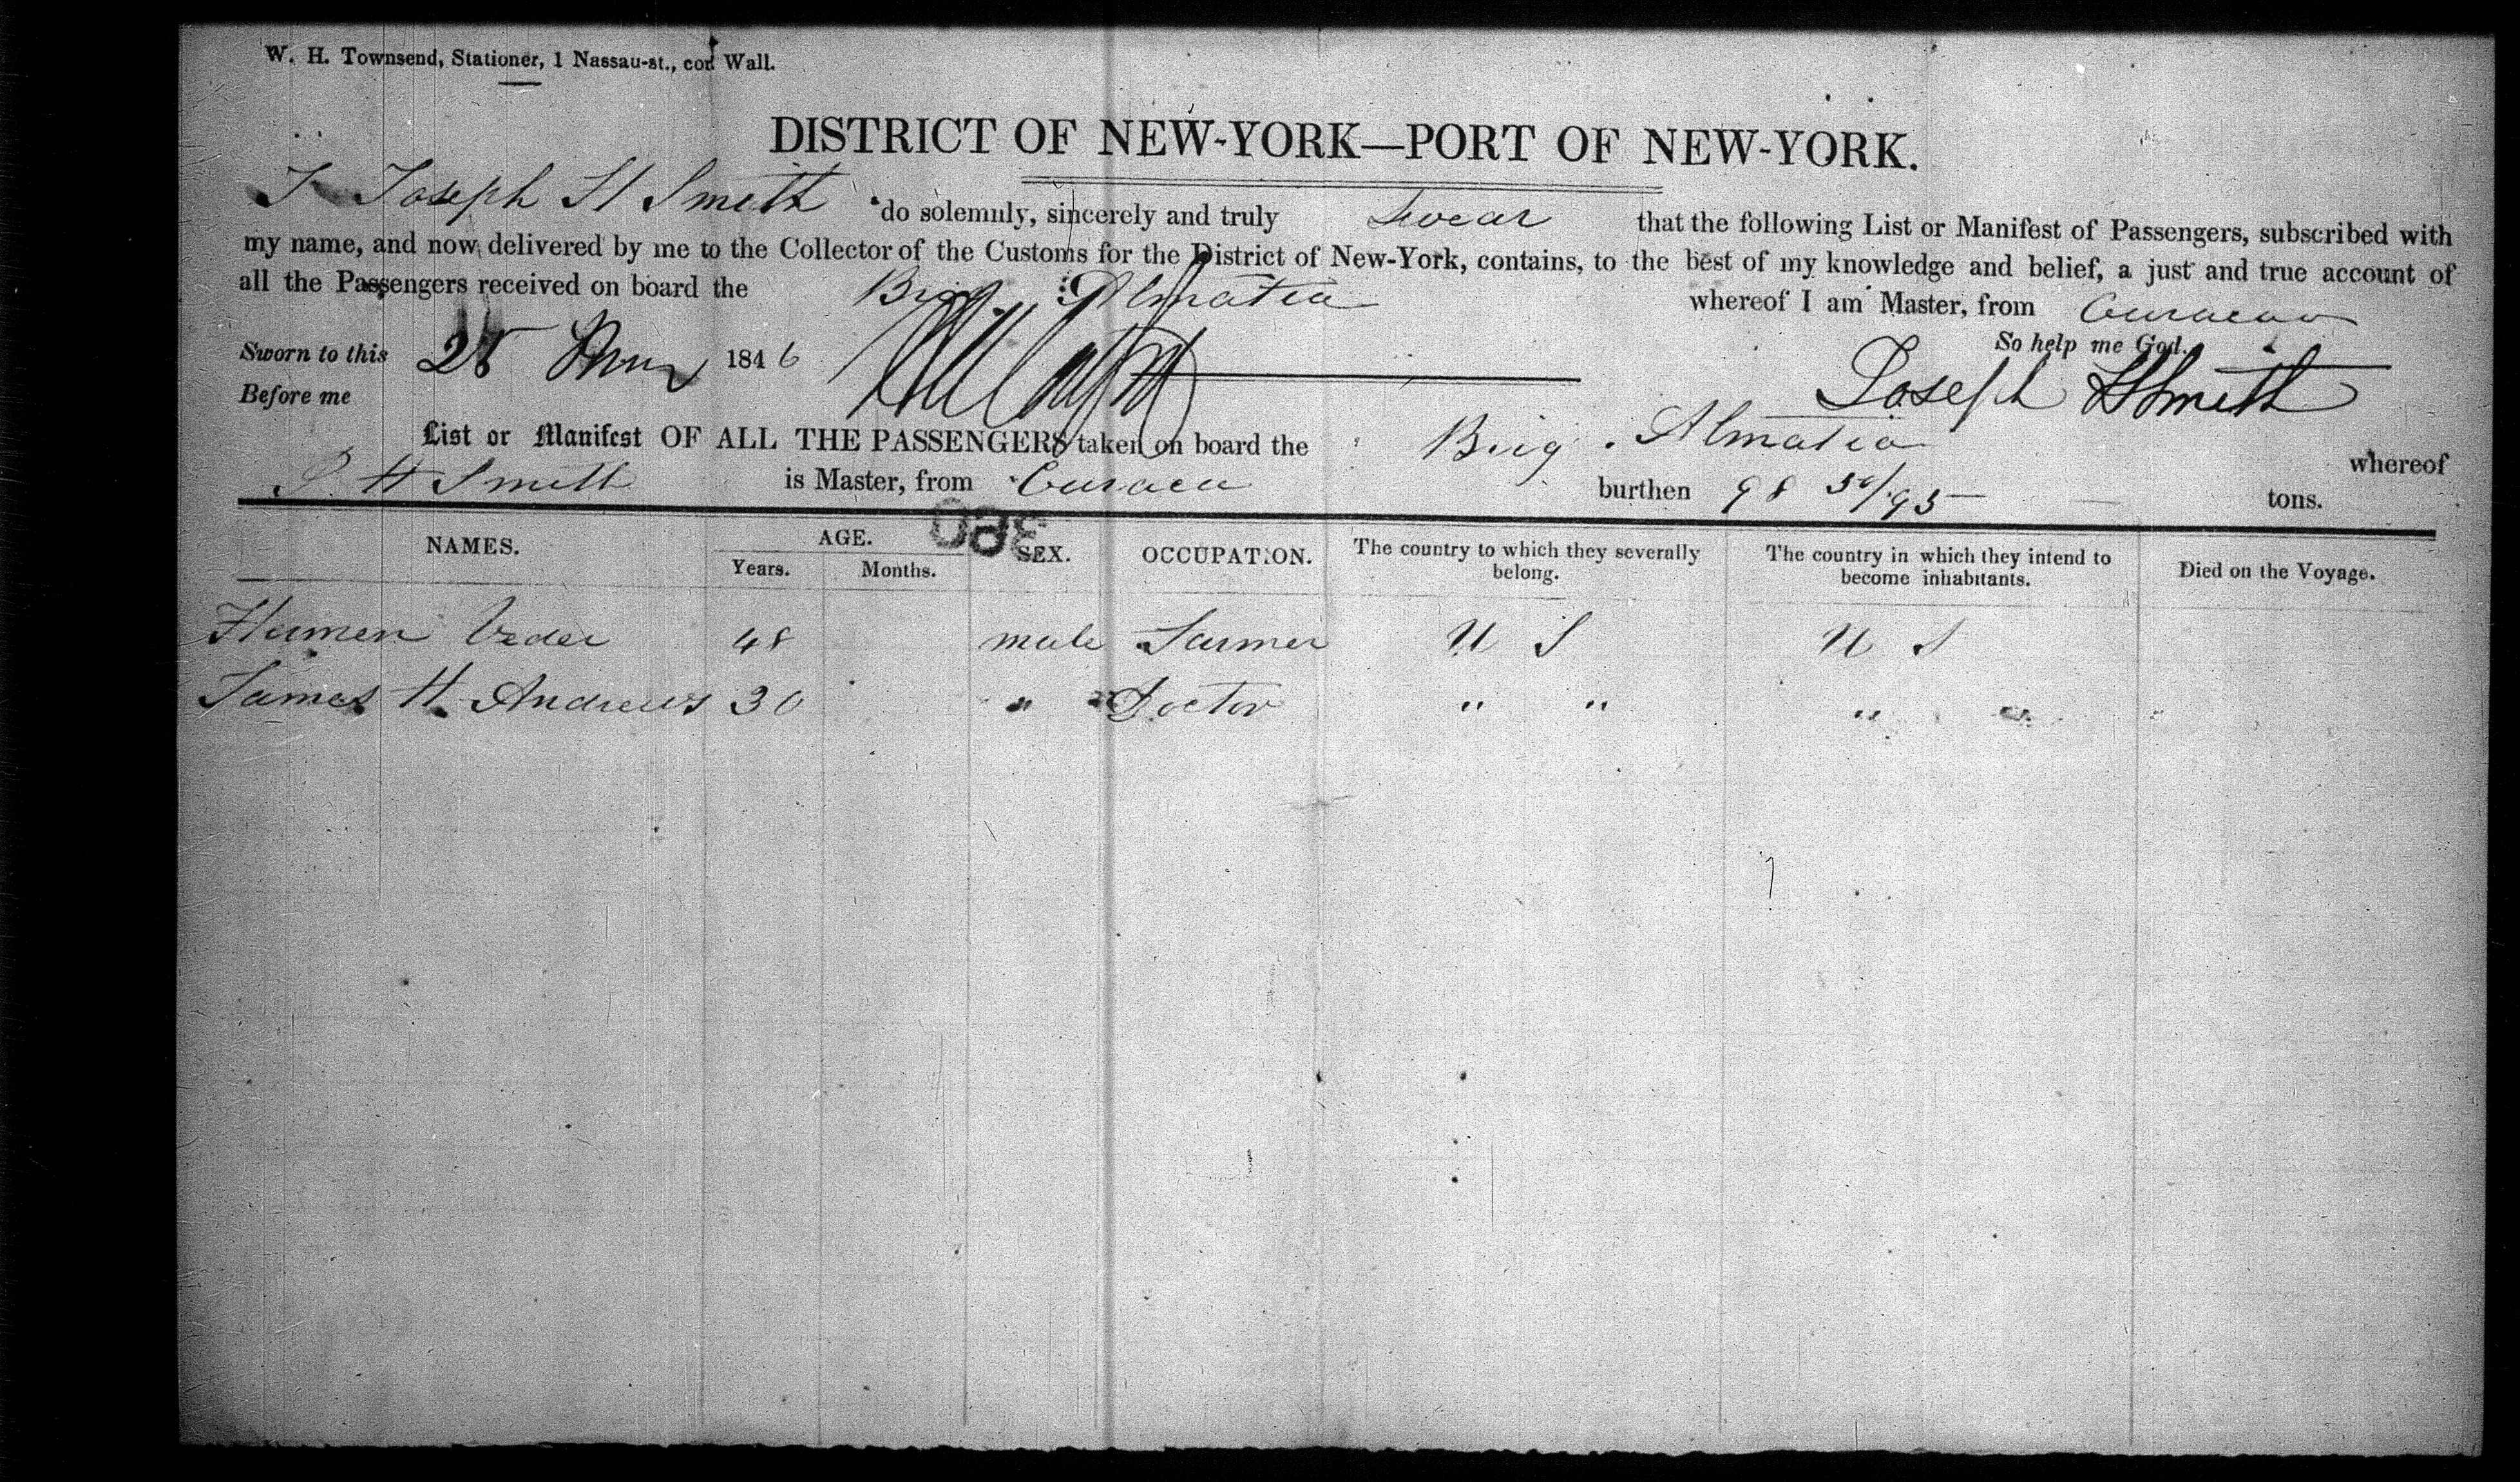 W. H. Townsend, Stationer, 1 Nassau-st., cor Wall.
DISTRICT OF NEW-YORK—PORT OF NEW-YORK.
I Joseph H Smith do solemnly, sincerely and truly Swear that the following List or Manifest of Passengers, subscribed with
my name, and now delivered by me to the Collector of the Customs for the District of New-York, contains, to the best of my knowledge and belief, a just and true account of
all the Passengers received on board the Brig Almatia whereof I am Master, from Curacao
So help me God.
Sworn to this 25 1846
Before me Joseph H Smith
List or Manifest OF ALL THE PASSENGERS taken on board the Brig Almatia whereof
J. H Smith is Master, from Curacu burthen 98 50/95 tons.
NAMES. AGE. SEX. OCCUPATION. The country to which they severally belong. The country in which they intend to become inhabitants. Died on the Voyage.
Years. Months.
Veder 48 male Farmer U S U S
James H. Andrews 30 " Doctor " " " "